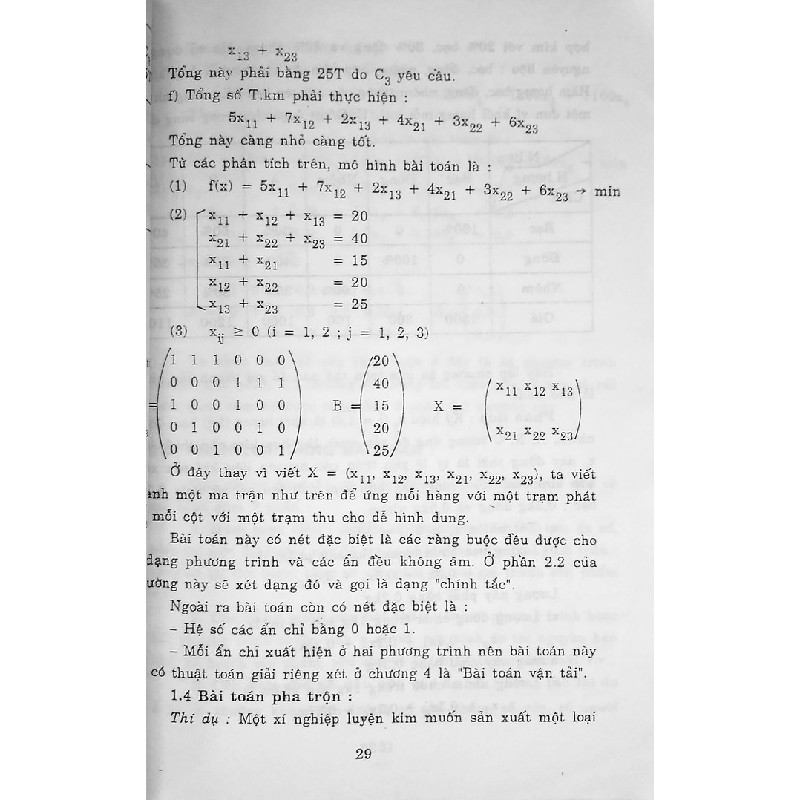 x₁₃ + x₂₃
Tổng này phải bằng 25T do C₃ yêu cầu.
f) Tổng số T.km phải thực hiện :
5x₁₁ + 7x₁₂ + 2x₁₃ + 4x₂₁ + 3x₂₂ + 6x₂₃
Tổng này càng nhỏ càng tốt.
Từ các phân tích trên, mô hình bài toán là :
(1) f(x) = 5x₁₁ + 7x₁₂ + 2x₁₃ + 4x₂₁ + 3x₂₂ + 6x₂₃ → min
(2) x₁₁ + x₁₂ + x₁₃ = 20
x₂₁ + x₂₂ + x₂₃ = 40
x₁₁ + x₂₁ = 15
x₁₂ + x₂₂ = 20
x₁₃ + x₂₃ = 25
(3) xᵢⱼ ≥ 0 (i = 1, 2 ; j = 1, 2, 3)
1 1 1 0 0 0 20
0 0 0 1 1 1 40 x₁₁ x₁₂ x₁₃
= 1 0 0 1 0 0 B = 15 X =
0 1 0 0 1 0 20 x₂₁ x₂₂ x₂₃
0 0 1 0 0 1 25
Ở đây thay vì viết X = (x₁₁, x₁₂, x₁₃, x₂₁, x₂₂, x₂₃), ta viết
ành một ma trận như trên để ứng mỗi hàng với một trạm phát
mỗi cột với một trạm thu cho dễ hình dung.
Bài toán này có nét đặc biệt là các ràng buộc đều được cho
dạng phương trình và các ẩn đều không âm. Ở phần 2.2 của
ường này sẽ xét dạng đó và gọi là dạng "chính tắc".
Ngoài ra bài toán còn có nét đặc biệt là :
- Hệ số các ẩn chỉ bằng 0 hoặc 1.
- Mỗi ẩn chỉ xuất hiện ở hai phương trình nên bài toán này
có thuật toán giải riêng xét ở chương 4 là "Bài toán vận tải".
1.4 Bài toán pha trộn :
Thí dụ : Một xí nghiệp luyện kim muốn sản xuất một loại
29